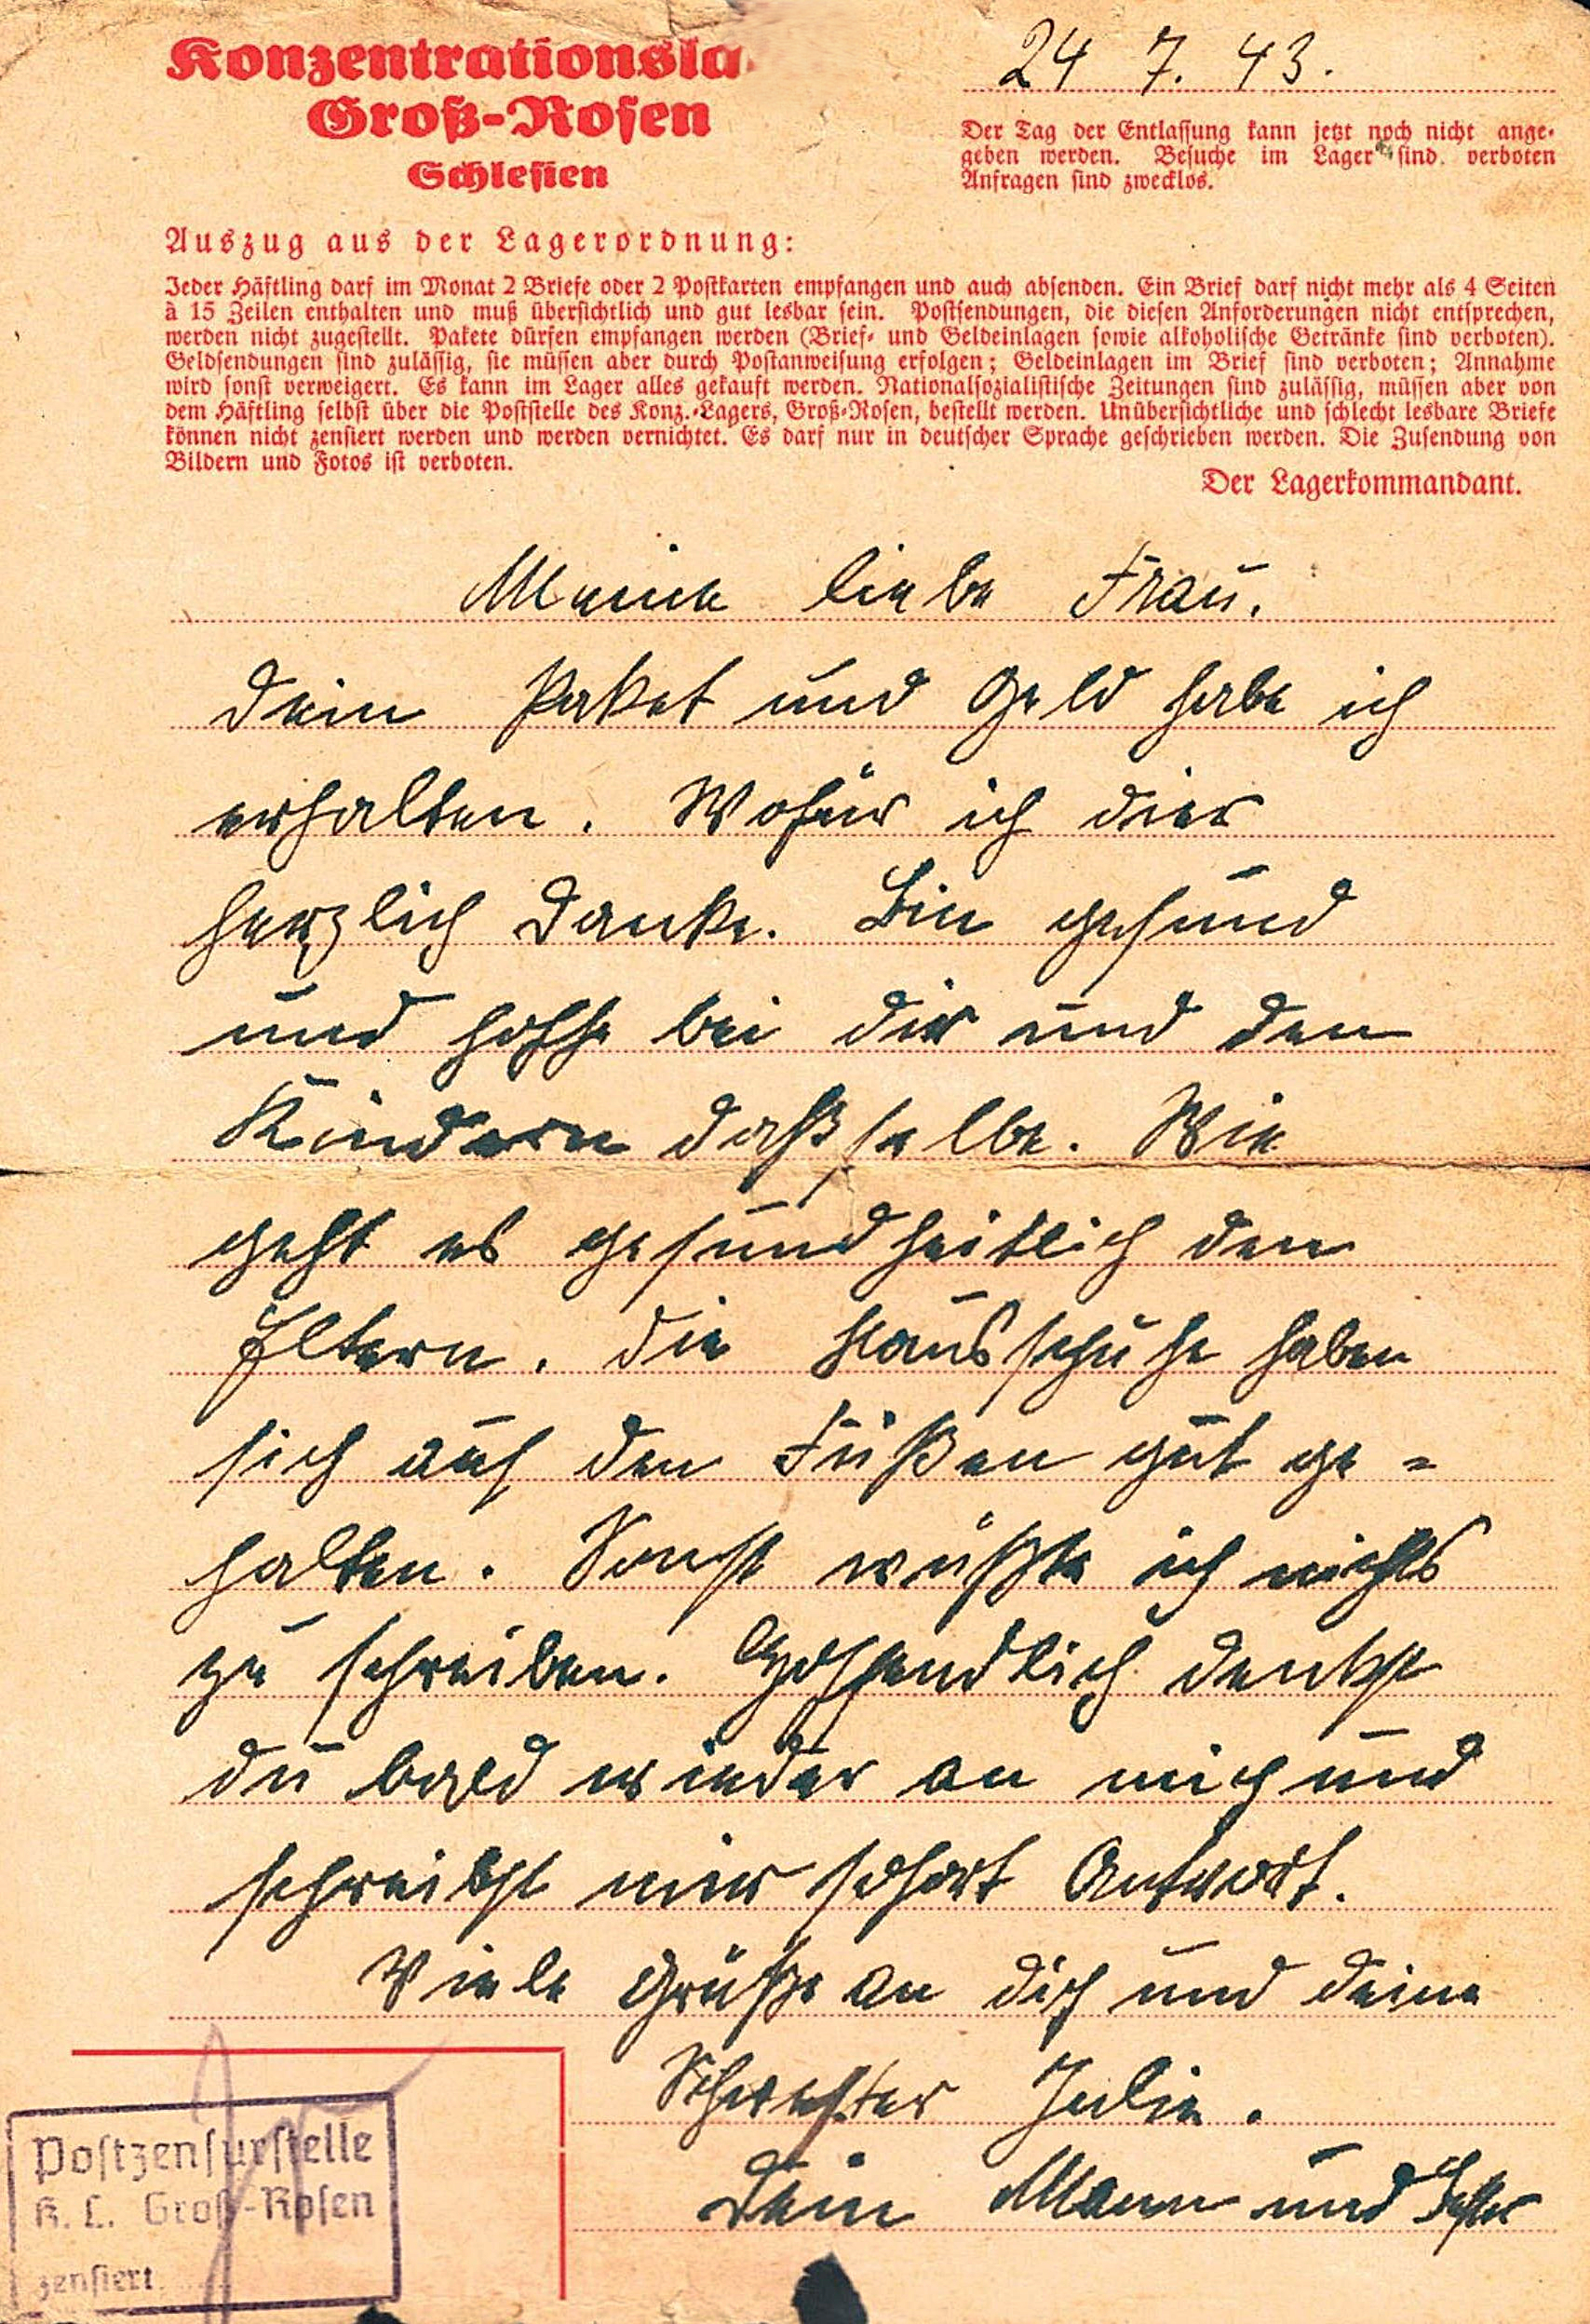 Konzentrationsla
Groß-Rosen
Schlesien
24 7. 43.
Der Tag der Entlassung kann jetzt noch nicht ange-
geben werden. Besuche im Lager sind verboten
Anfragen sind zwecklos.
Auszug aus der Lagerordnung:
Jeder Häftling darf im Monat 2 Briefe oder 2 Postkarten empfangen und auch absenden. Ein Brief darf nicht mehr als 4 Seiten
à 15 Zeilen enthalten und muß übersichtlich und gut lesbar sein. Postsendungen, die diesen Anforderungen nicht entsprechen,
werden nicht zugestellt. Pakete dürfen empfangen werden (Brief- und Geldeinlagen sowie alkoholische Getränke sind verboten).
Geldsendungen sind zulässig, sie müssen aber durch Postanweisung erfolgen; Geldeinlagen im Brief sind verboten; Annahme
wird sonst verweigert. Es kann im Lager alles gekauft werden. Nationalsozialistische Zeitungen sind zulässig, müssen aber von
dem Häftling selbst über die Poststelle des Konz.-Lagers, Groß-Rosen, bestellt werden. Unübersichtliche und schlecht lesbare Briefe
können nicht zensiert werden und werden vernichtet. Es darf nur in deutscher Sprache geschrieben werden. Die Zusendung von
Bildern und Fotos ist verboten.
Der Lagerkommandant.
Meine liebe Frau.
Dein Paket und Geld habe ich
erhalten. Wofür ich dier
herzlich Danke. Bin gesund
und hoffe bei dir und den
Kindern daßselbe. Wie
geht es gesundheitlich den
Eltern. Die Hausschuhe haben
sich auf den Füßen gut ge-
halten. Sonst wüßte ich nichts
zu schreiben. Hoffendlich denkst
du bald wieder an mich und
schreibst mir sofort Antwort.
Viele Grüße an dich und deine
Schwester Julie.
Dein Mann und
Postzensurstelle
K. L. Groß-Rosen
zensiert